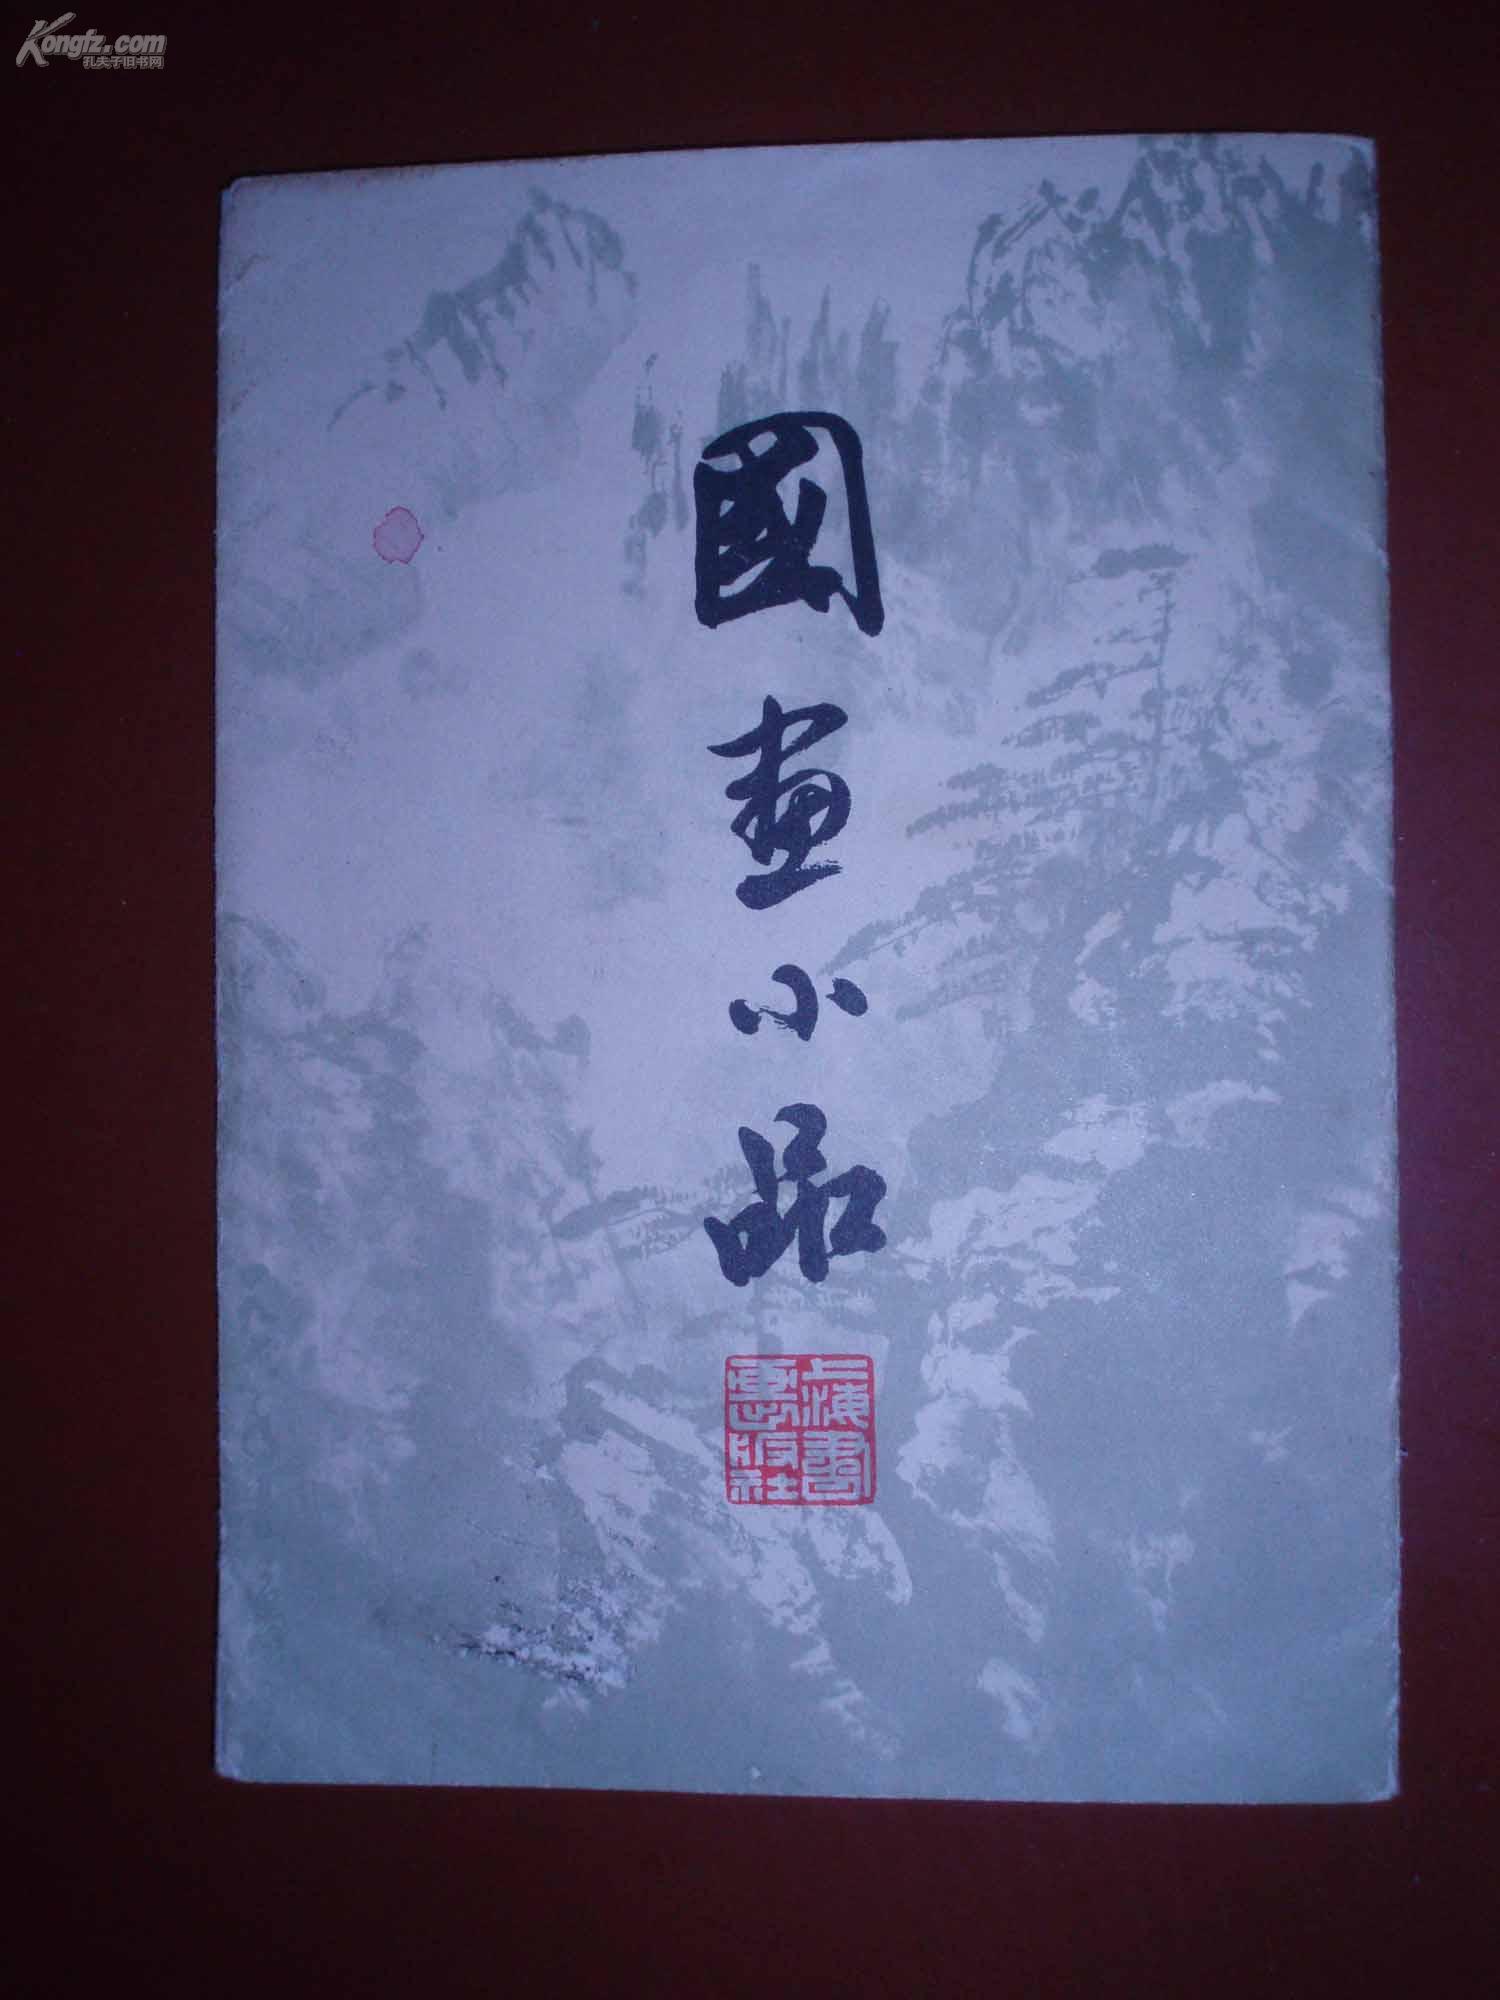 Kongfz.com
孔夫子旧书网
國畫小品
上海書畫出版社